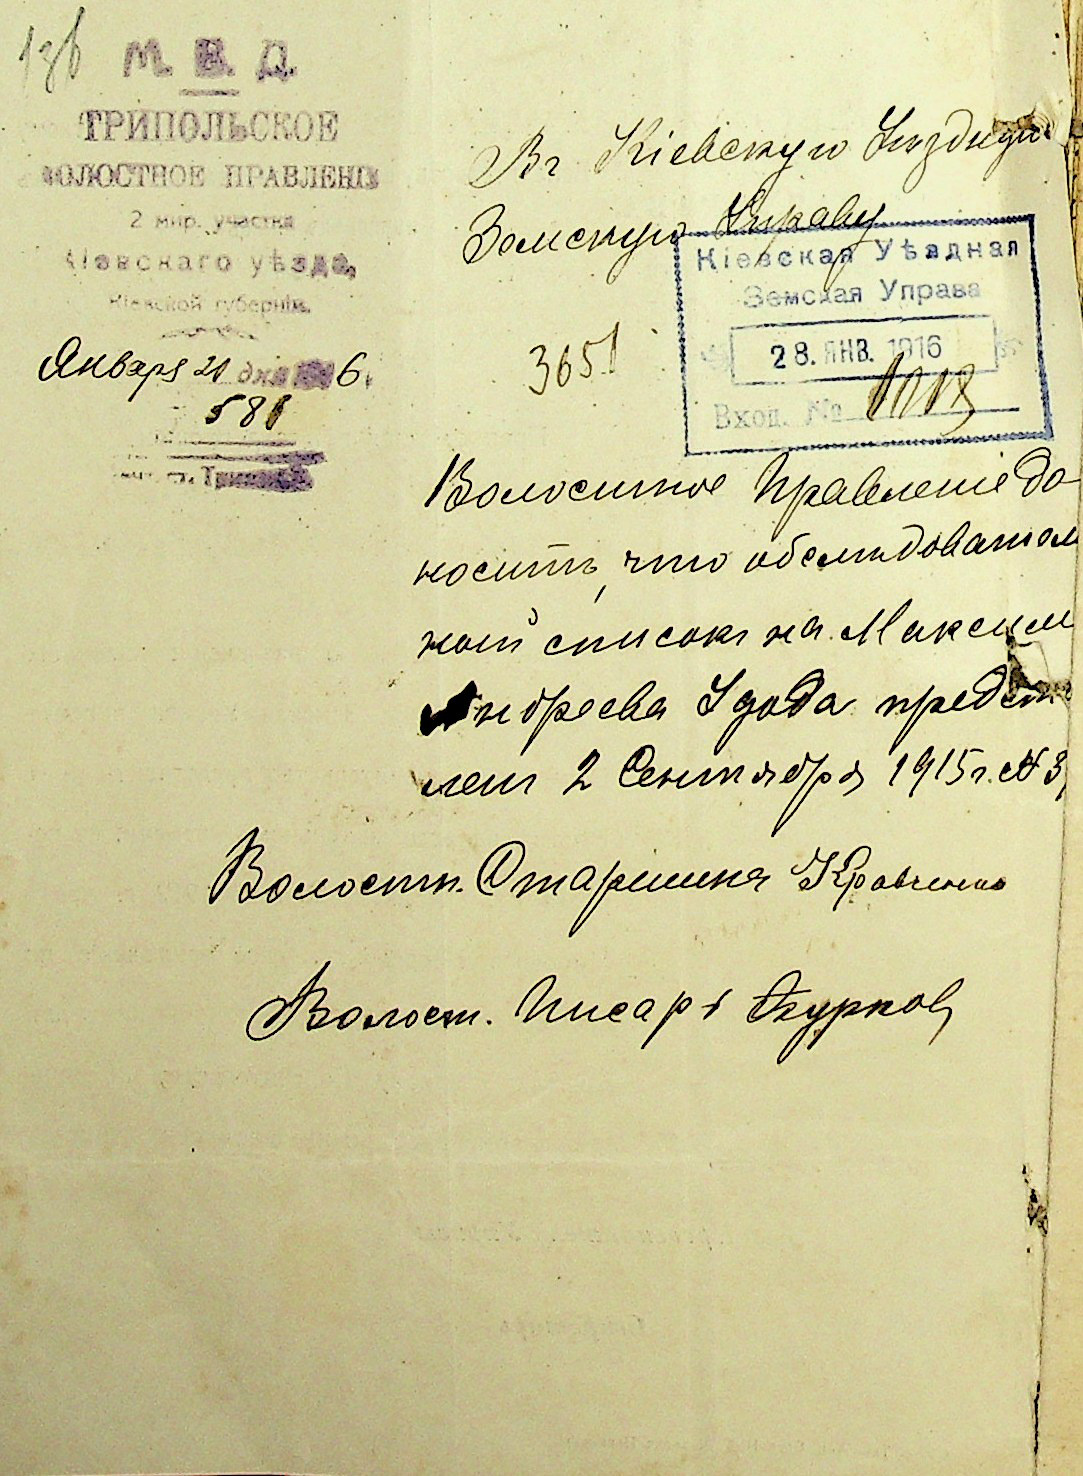 М. В. Д.
ТРИПОЛЬСКОЕ
ВОЛОСТНОЕ ПРАВЛЕНІЕ
2 мир. участка
Кіевскаго уѣзда,
Кіевской губерніи.
Января 21 дня 1916 г.
581
Въ Кіевскую Уѣздную
Земскую Управу
Кіевская Уѣздная
Земская Управа
28. ЯНВ. 1916
Вход. №
3651
Волостное Правленіе до-
носитъ, что обслѣдователь
ной списокъ на Максима
Андреева Удода представ
ленъ 2 Сентября 1915 г. № 3
Волостн. Старшина Кравченко
Волост. Писарь